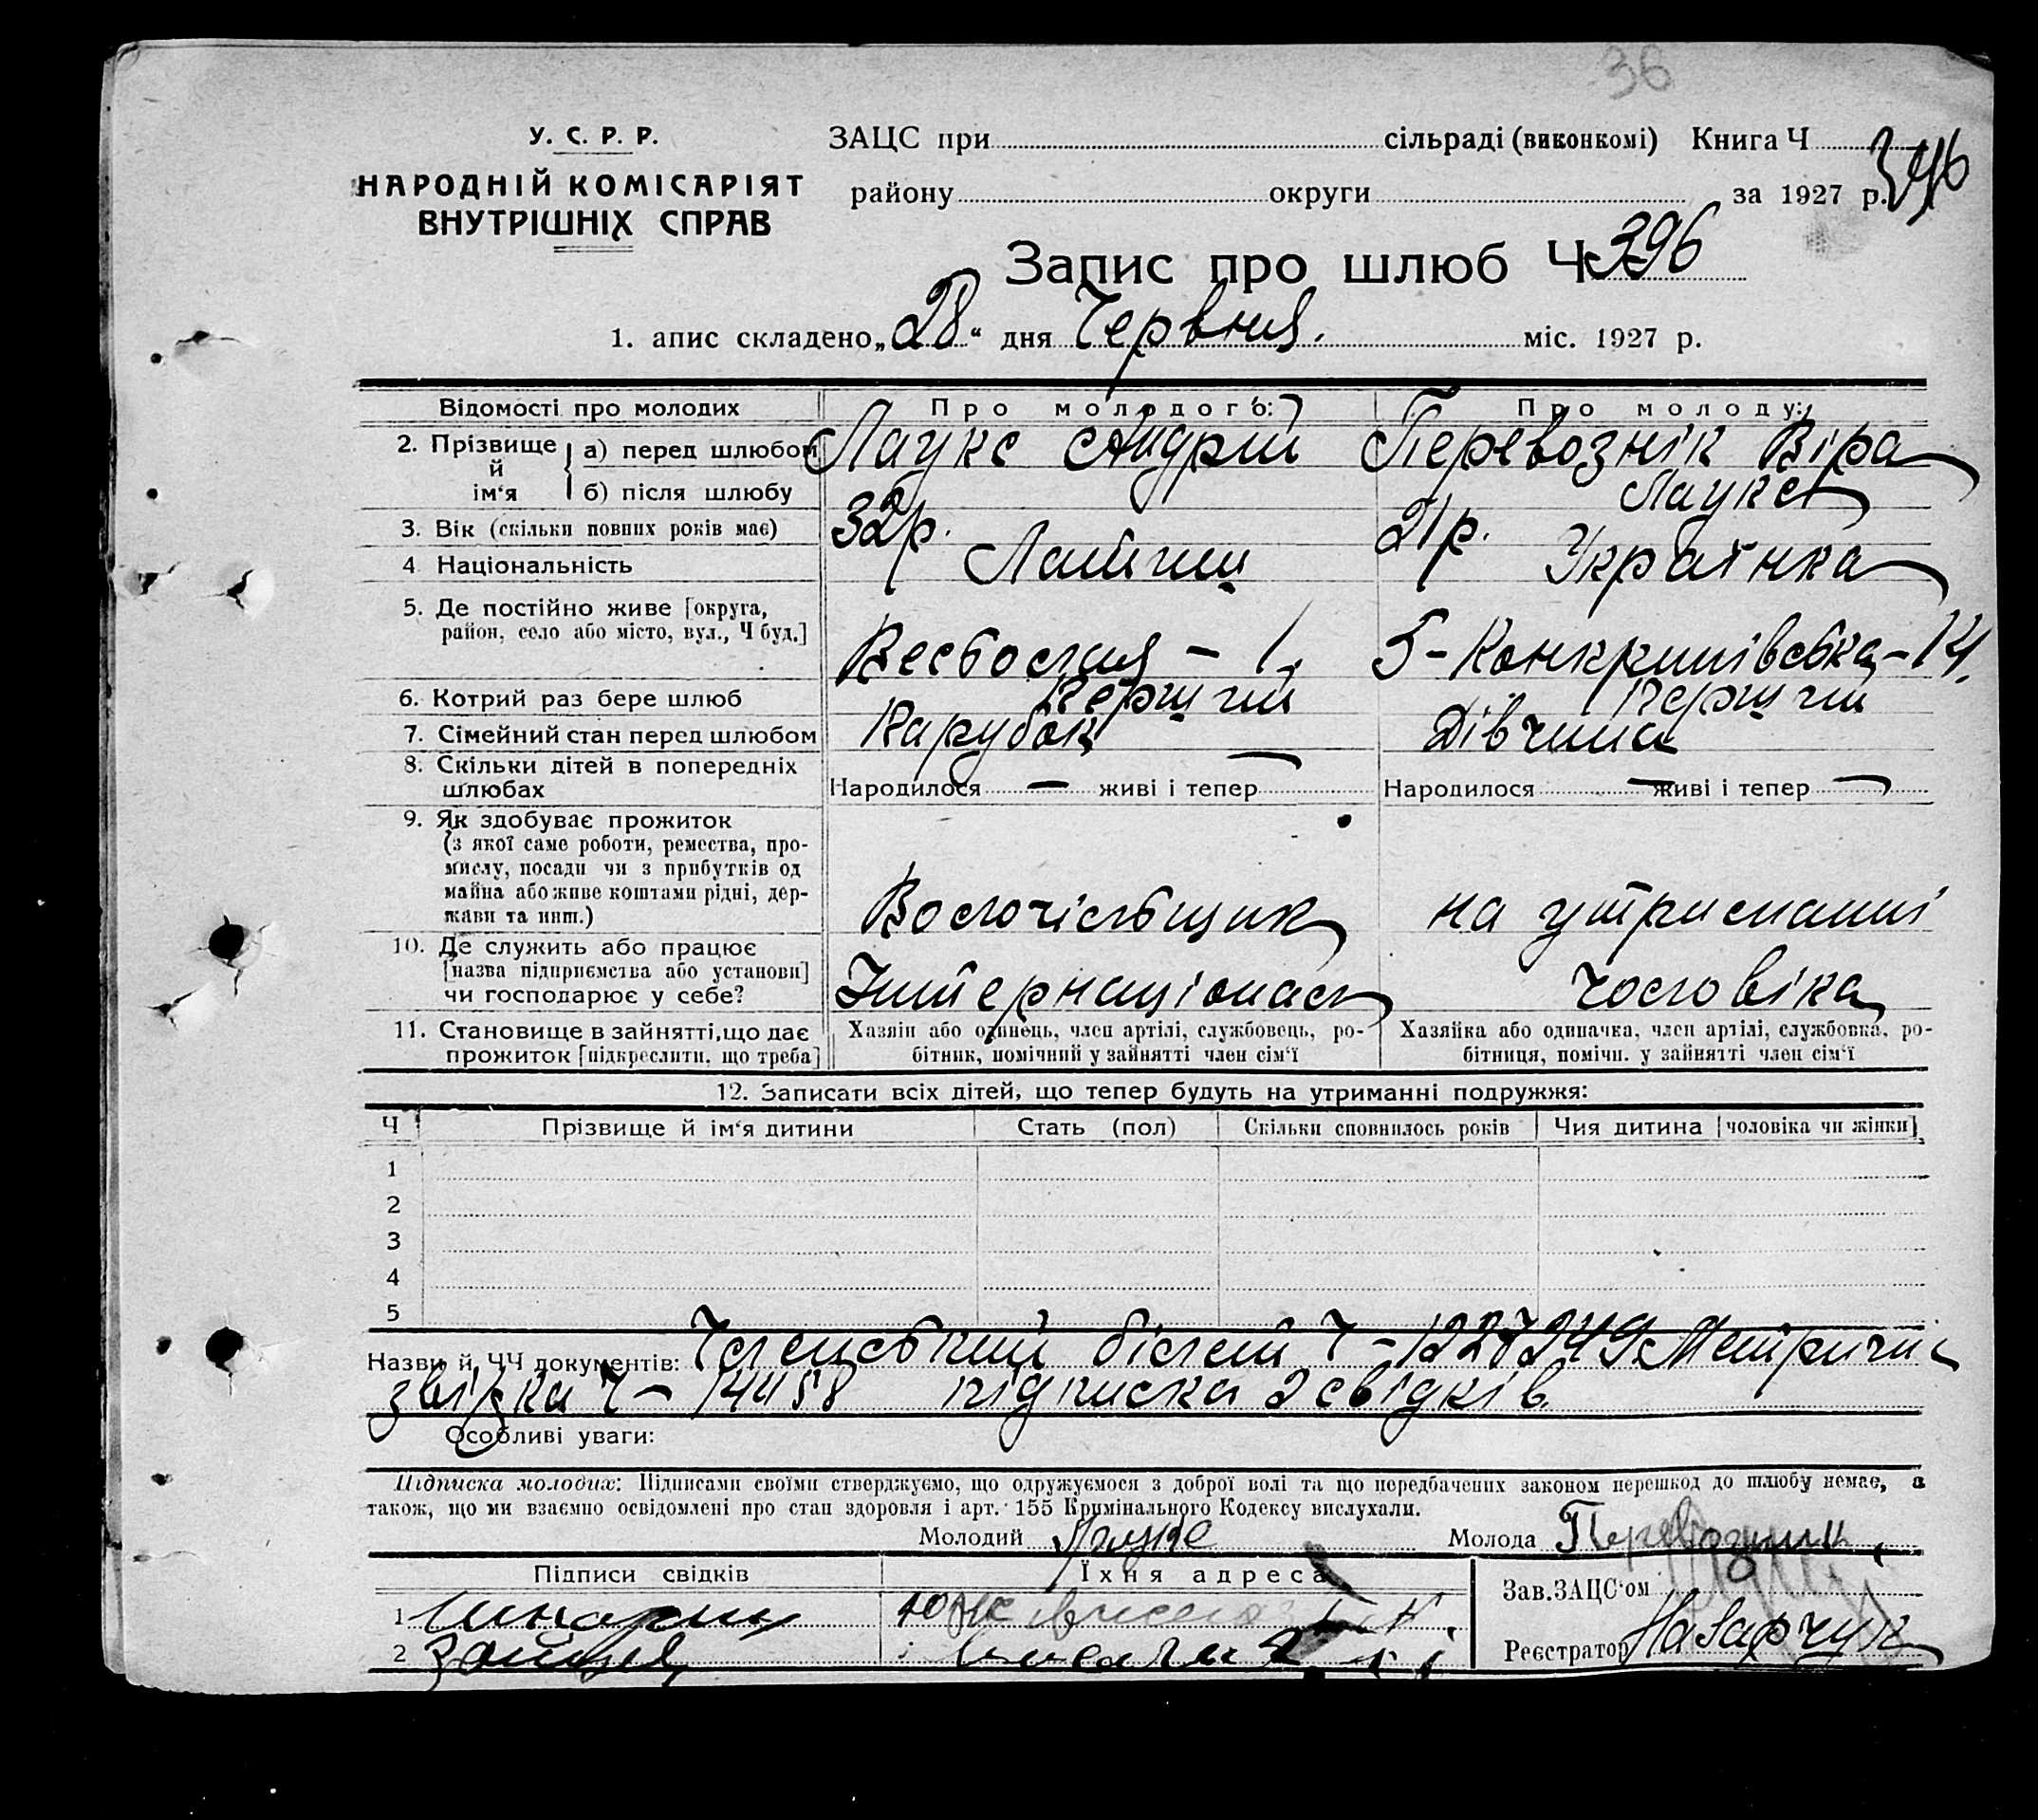 36
У. С. Р. Р.
НАРОДНІЙ КОМІСАРІЯТ
ВНУТРІШНІХ СПРАВ
ЗАЦС при сільраді (виконкомі) Книга Ч
району округи за 1927 р. 396
Запис про шлюб Ч 396
1. апис складено „28“ дня Червня. міс. 1927 р.
Відомості про молодих Про молодого: Про молоду:
2. Прізвище й ім‘я а) перед шлюбом Лаукс Андрій Перевознік Віра
б) після шлюбу Лаукс
3. Вік (скільки повних років має) 32 р. 21 р.
4 Національність Латиш Українка
5. Де постійно живе [округа,
район, село або місто, вул., Ч буд.] – 1. – 14.
6. Котрий раз бере шлюб Перший Перший
7. Сімейний стан перед шлюбом Парубок Дівчина
8. Скільки дітей в попередніх
шлюбах Народилося — живі і тепер — Народилося — живі і тепер —
9. Як здобуває прожиток
(з якої саме роботи, ремества, про-
мислу, посади чи з прибутків од
майна або живе коштами рідні, дер-
жави та инш.) на утриманні
10. Де служить або працює
[назва підприємства або установи]
чи господарює у себе? Інтернаціонал чоловіка
11. Становище в зайнятті, що дає
прожиток [підкреслити, що треба]
Хазяїн або одинець, член артілі, службовець, ро-
бітник, помічний у зайнятті член сім‘ї
Хазяйка або одиначка, член артілі, службовка, ро-
бітниця, помічн. у зайнятті член сім‘ї
12. Записати всіх дітей, що тепер будуть на утриманні подружжя:
Ч Прізвище й ім‘я дитини Стать (пол) Скільки сповнилось років Чия дитина [чоловіка чи жінки]
1
2
3
4
5
Назви й ЧЧ документів: Членський білет Ч – 1227249. Метрична
звістка Ч – 14458 підписка 2 свідків.
Особливі уваги:
Підписка молодих: Підписами своїми стверджуємо, що одружуємося з доброї волі та що передбачених законом перешкод до шлюбу немає, а
також, що ми взаємно освідомлені про стан здоровля і арт. 155 Кримінального Кодексу вислухали.
Молодий Лаукс Молода Перевозник
Підписи свідків Їхня адреса Зав. ЗАЦС‘ом
1
2 Реєстратор Назарчук